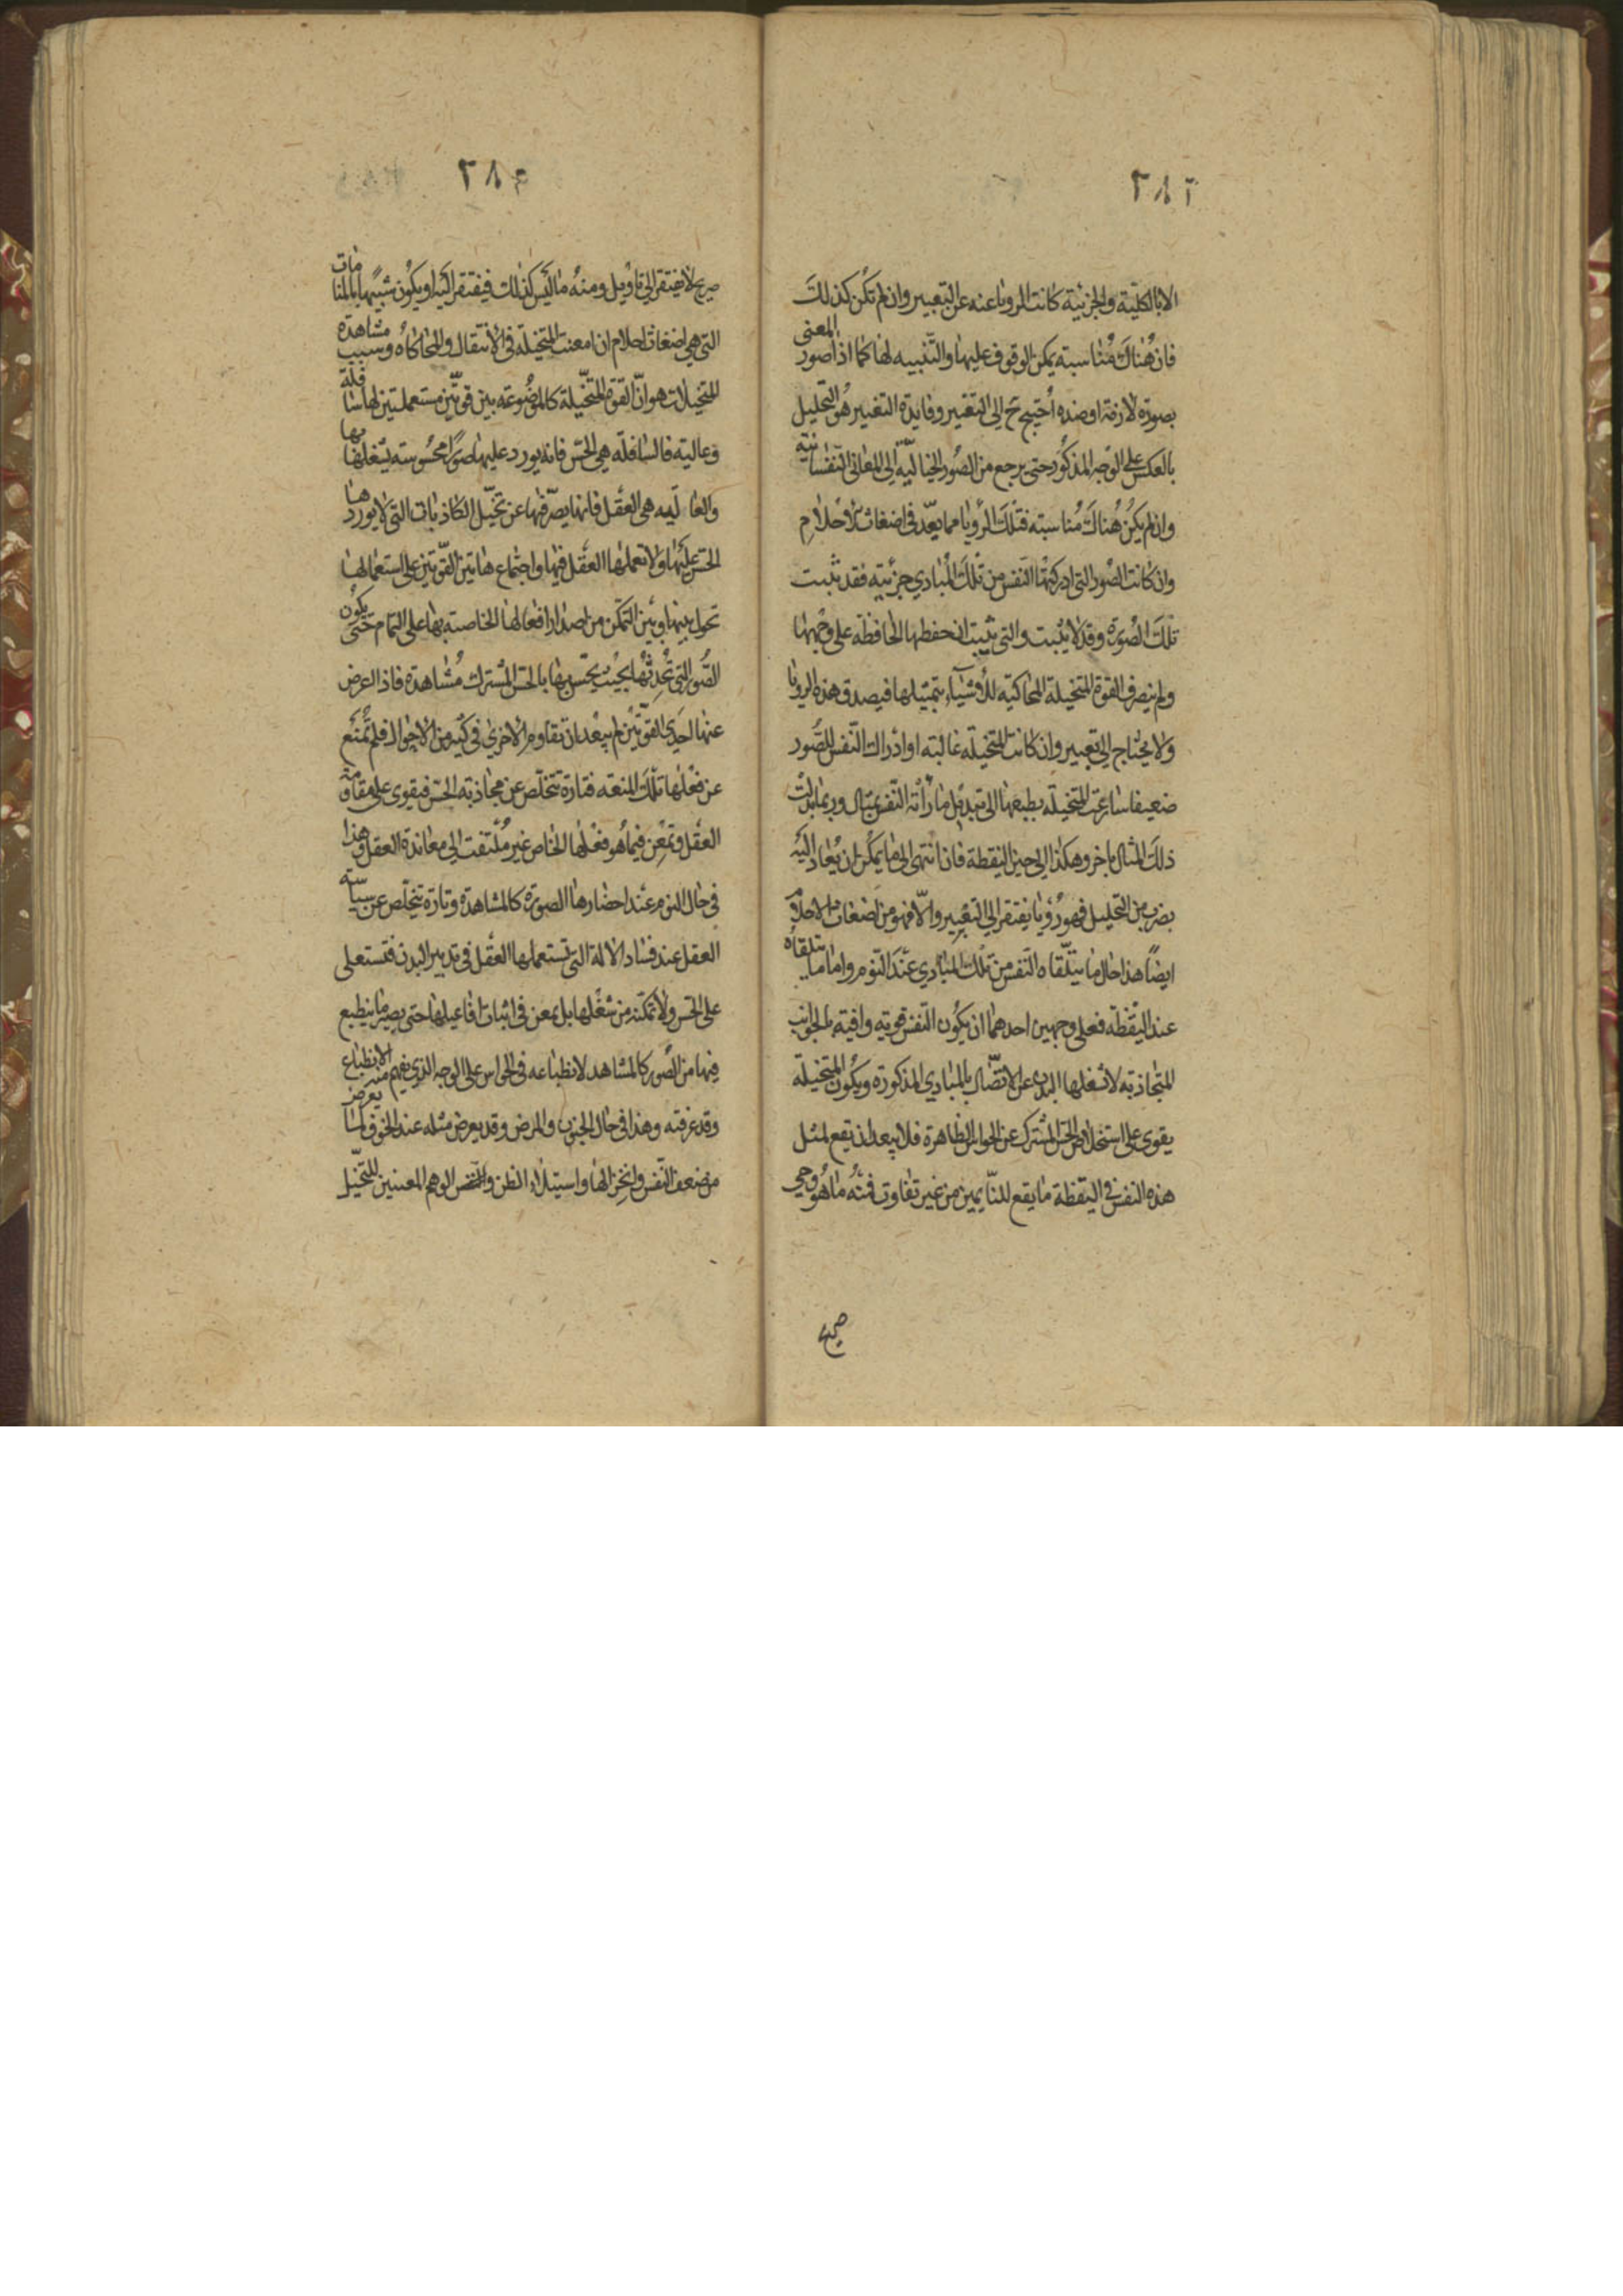 ٢٨٢
الا بالكلية والجزئية كانت الرويا غنيه عن التعبير وان لم تكن كذلك
فان هناك مناسبة يمكن الوقوف عليها والتنبيه لها كما اذا صور المعنى
بصورة لازمة او ضده أحتيج ح الى التعبير وفايدة التعبير هو التحليل
بالعكس على الوجه المذكور حتى يرجع من الصور الخيالية الى المعانى النفسانية
وان لم يكن هناك مناسبة فتلك الرؤيا مما يعد فى اضغاث الاحلام
وان كانت الصور التى ادركتها النفس من تلك المبادي جزئية فقد تثبت
تلك الصورة وقد لا يثبت والتى يثبت ان حفظها الحافظة على وجهها
ولم يتصرف القوة المتخيلة المحاكية للأشياء بتمثيلها فيصدق هذه الرويا
ولا يحتاج الى تعبير وان كانت المتخيلة غالبة او ادراك النفس للصور
ضعيفا سارعت المتخيلة بطبعها الى تبديل ما رأته النفس بمثال وربما بدلت
ذلك المثال باخر وهكذا الى حين اليقظة فان انتهى الى ما يمكن ان يعاد اليه
بضرب من التحليل فهو رؤيا يفتقر الى التعبير والا فهو من اضغاث الاحلام
ايضا هذا حال ما يتلقاه النفس من تلك المبادي عند النوم واما ما يتلقاه
عند اليقظة فعلى وجهين احدهما ان يكون النفس قوية وافية بالجوانب
المتجاذبة لا شغلها البدن عن الاتصال بالمبادي المذكورة ويكون المتخيلة
يقوى على استخلاص الحس المشترك عن الحواس الظاهرة فلا يبعد ان تقع لمثل
هذه النفس فى اليقظة ما يقع للنايمين من غير تفاوت فمنه ما هو وحي
صريح
٢٨٤
صريح لا يفتقر الى تاويل ومنه ما ليس كذلك فيفتقر اليه او يكون شبيها بالمنامات
التى هي اضغاث احلام ان امعنت المتخيلة فى الانتقال والمحاكاة وسبب مشاهدة
المتخيلات هو ان القوة المتخيلة كالموضوعة بين قوتين مستعملتين لها سافلة
وعالية فالسافلة هى الحس فانه يورد عليها صورا محسوسة يشغلها بها
والعالية هى العقل فانها يصرفها عن تخيل الكاذبات التى لا يوردها
الحس عليها ولا تعملها العقل فيها واجتماع هاتين القوتين على استعمالها
تحول بينها وبين التمكن من اصدار افعالها الخاصة بها على التمام حتى يكون
الصور التى تحدثها بحيث يحس بها بالحس المشترك مشاهدة فاذا اعرض
عنها احدى القوتين لم يبعد ان تقاوم الاخرى فى كثير من الاحوال فلم تمتنع
عن فعلها تلك المنعة فتارة تتخلص عن مجاذبة الحس فيقوى على مقاومة
العقل وتمعن فيما هو فعلها الخاص غير ملتفت الى معاندة العقل وهذا
فى حال النوم عند احضارها الصورة كالمشاهدة وتارة تتخلص عن سياسة
العقل عند فساد الالة التى تستعملها العقل فى تدبير البدن فتستعلى
على الحس ولا تمكنه من شغلها بل يمعن فى اثبات افاعيلها حتى يصير ما ينطبع
فيها من الصور كالمشاهد لانطباعه فى الحواس على الوجه الذي يفهم منه الانطباع
وقد عرفته وهذا فى حال الجنون والمرض وقد يعرض مثله عند الخوف لما يعرض
من ضعف النفس وانخزالها واستيلاء الظن والوهم المعينين للتخيل